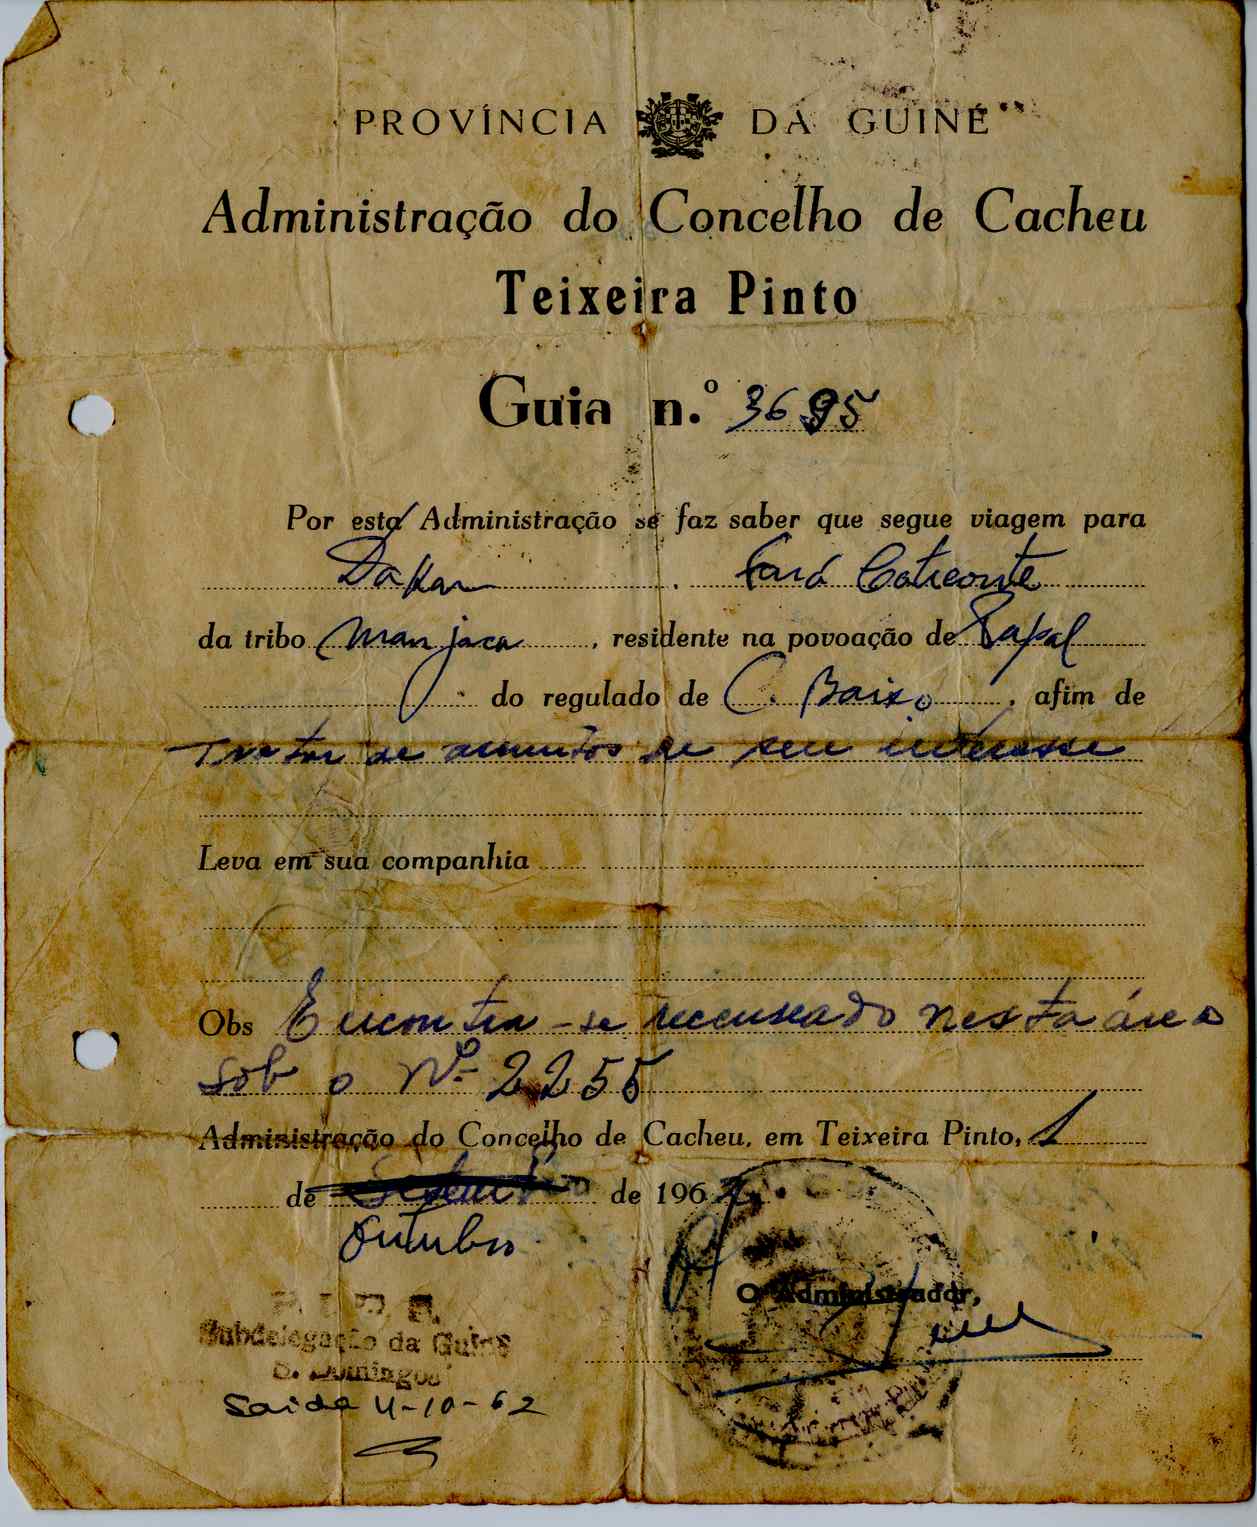 PROVÍNCIA DA GUINÉ
Administração do Concelho de Cacheu
Teixeira Pinto
Guia n.º 3695
Por esta Administração se faz saber que segue viagem para
Dakar
da tribo Manjaca, residente na povoação de Papal
do regulado de C. Baixo, afim de
Tratar de assuntos de seu interesse
Leva em sua companhia
Obs Encontra-se recenseado nesta área
sob o Nº 2255
Administração do Concelho de Cacheu, em Teixeira Pinto, 1
de Setembro de 196
Outubro
O Administrador,
P. I. D. E.
Subdelegação da Guiné
S. Domingos
Saida 4-10-62